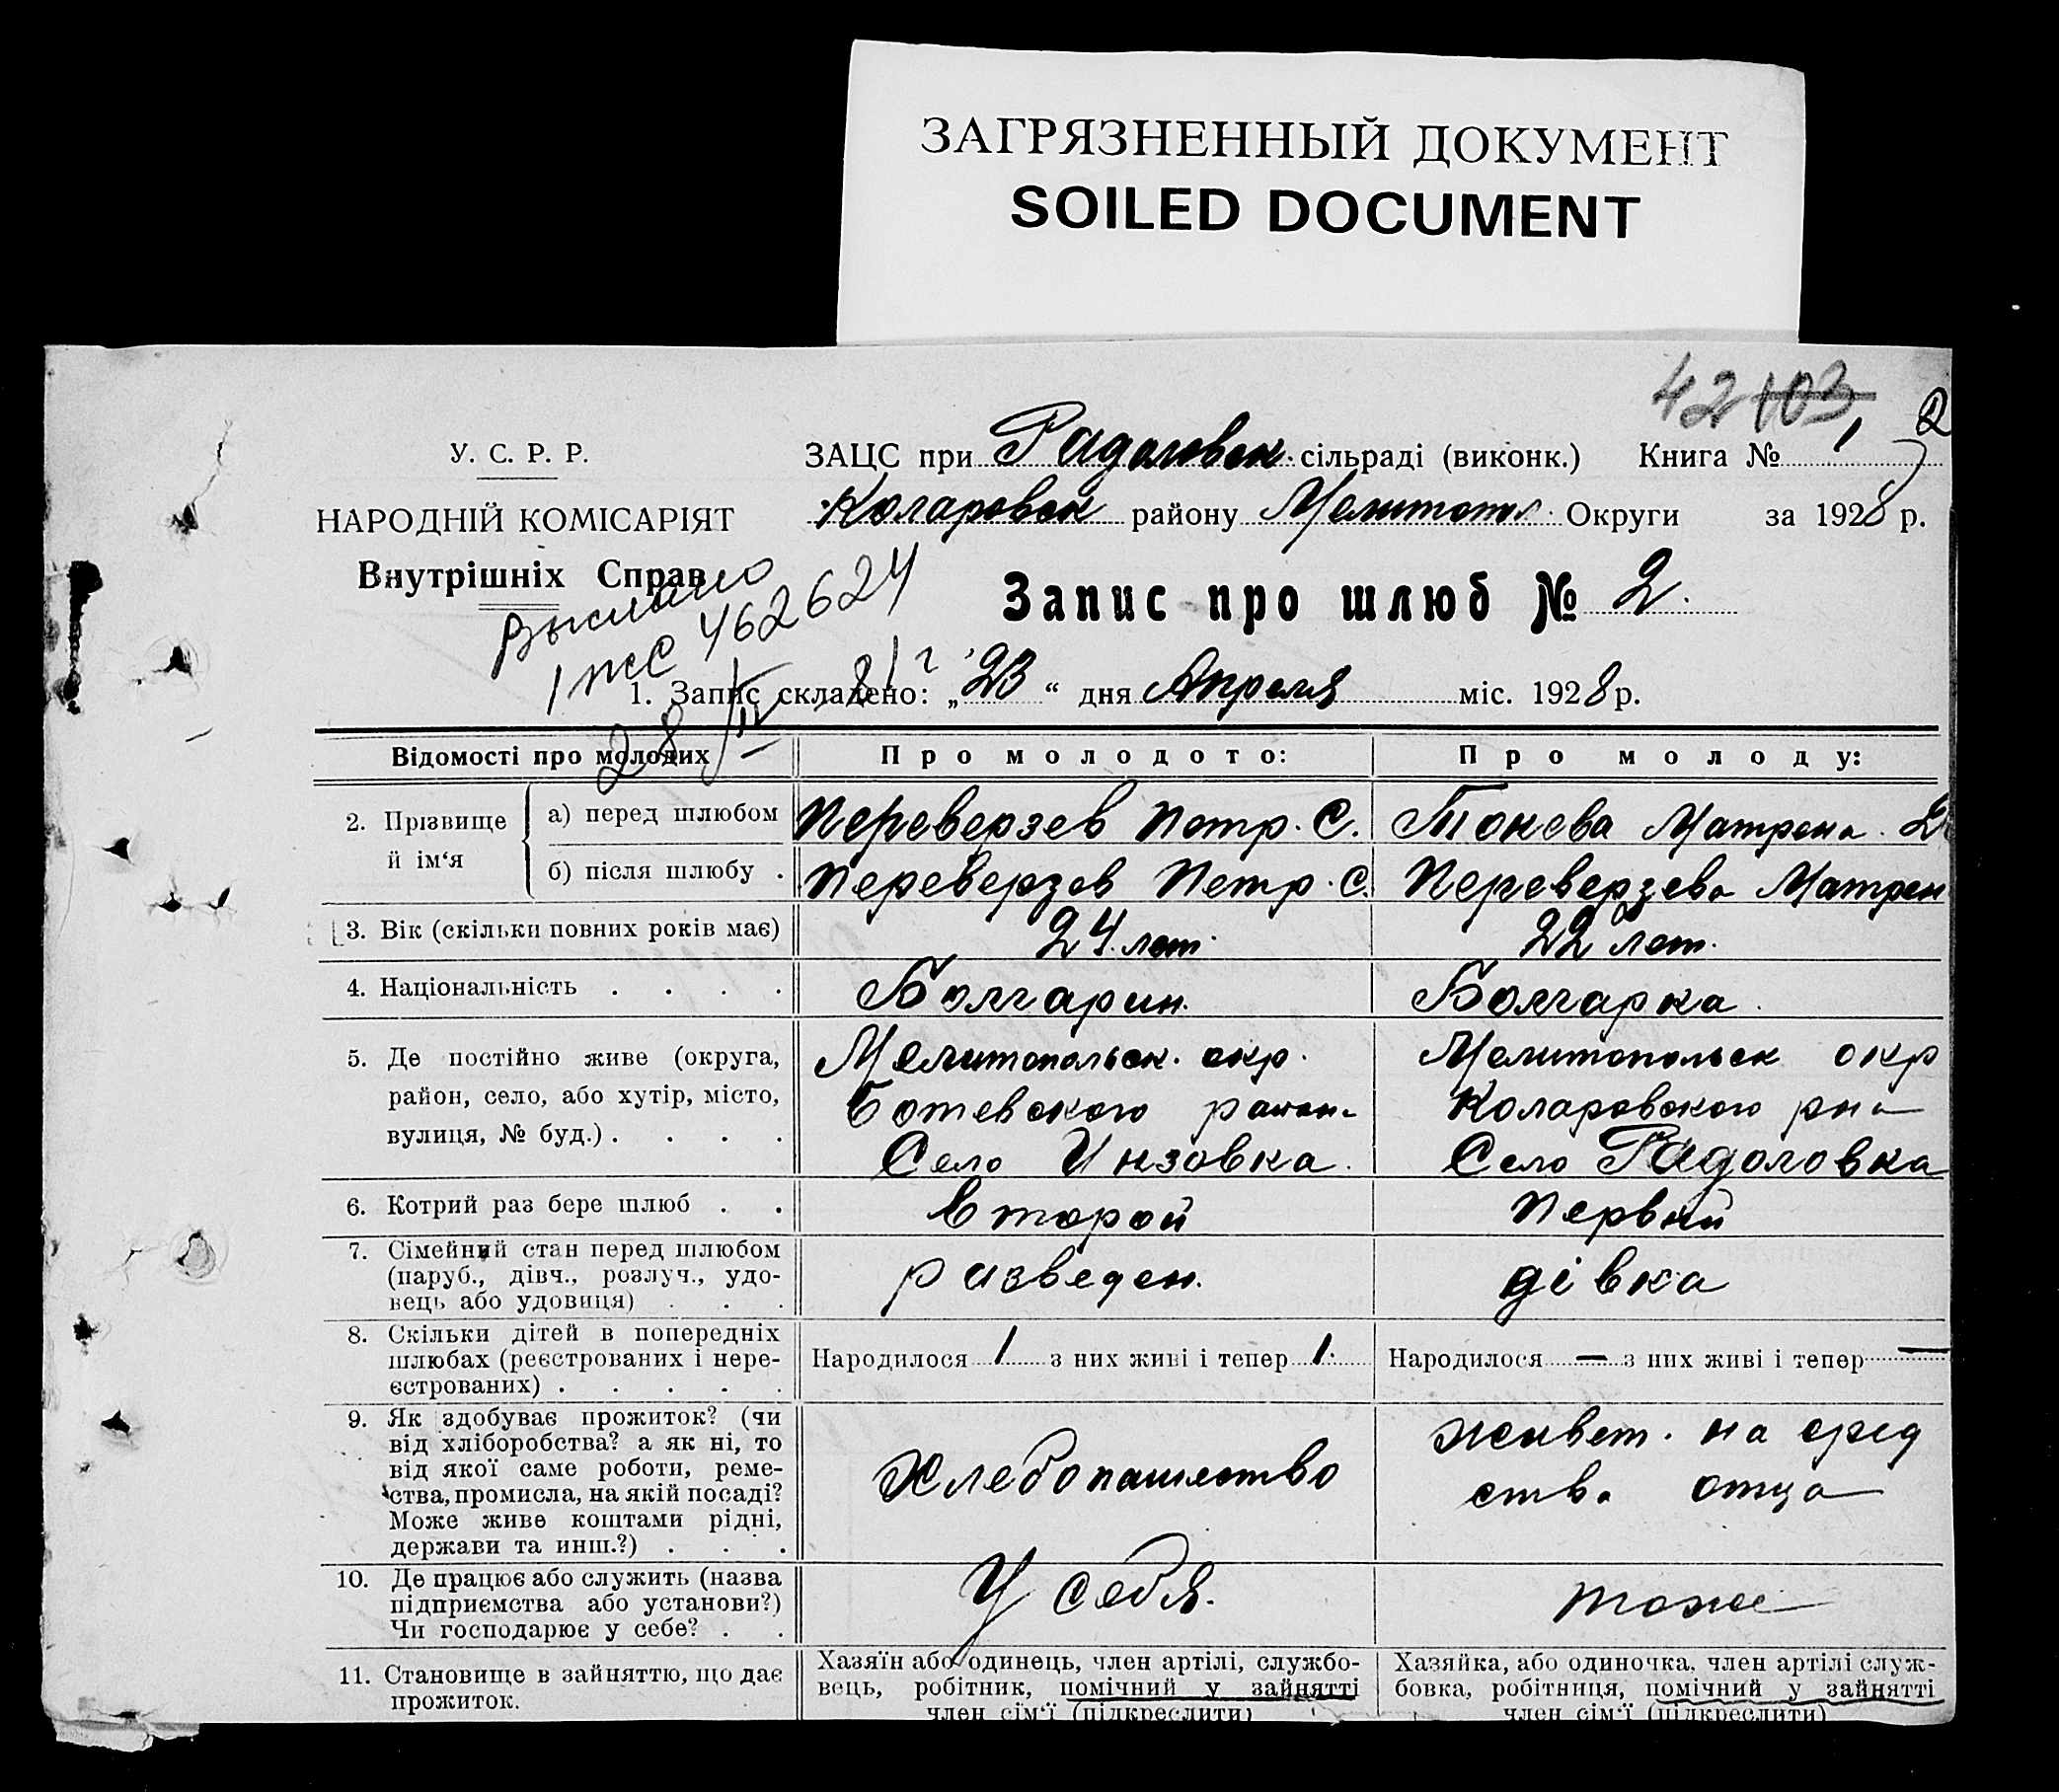 ЗАГРЯЗНЕННЫЙ ДОКУМЕНТ
SOILED DOCUMENT
42 103
2
У. С. Р. Р.
НАРОДНІЙ КОМІСАРІЯТ
Внутрішніх Справ
Выслано
462624
28/IV 81 г
ЗАЦС при Радоловск. сільраді (виконк.) Книга № 1
Коларовск району Мелитопол. Округи за 1928 р.
Запис про шлюб № 2.
1. Запис складено: „23“ дня Апреля міс. 1928 р.
Відомості про молодих Про молодого: Про молоду:
2. Прізвище й ім‘я
а) перед шлюбом Переверзев Петр. С. Тонева Матрена.
б) після шлюбу . Переверзев Петр. С. Переверзева Матрен
3. Вік (скільки повних років має) 24. лет. 22 лет.
4. Національність . . . . Болгарин. Болгарка.
5. Де постійно живе (округа,
район, село, або хутір, місто,
вулиця, № буд.) . . . .
Мелитопольск. окр.
Ботевского район.
Село Инзовка.
Мелитопольск окр
Коларовского рна
Село Радоловка
6. Котрий раз бере шлюб . . Второй Первый
7. Сімейний стан перед шлюбом
(паруб., дівч., розлуч., удо-
вець або удовиця) . . .
разведен.
дівка
8. Скільки дітей в попередніх
шлюбах (реєстрованих і нере-
єстрованих) . . . . .
Народилося 1 з них живі і тепер 1.
Народилося — з них живі і тепер —
9. Як здобуває прожиток? (чи
від хліборобства? а як ні, то
від якої саме роботи, реме-
ства, промисла, на якій посаді?
Може живе коштами рідні,
держави та инш.?) . . .
Хлебопашество
живет. на сред
ства отца
10. Де працює або служить (назва
підприємства або установи?)
Чи господарює у себе? . .
У себя.
тоже
11. Становище в зайняттю, що дає
прожиток.
Хазяїн або одинець, член артілі, службо-
вець, робітник, помічний у зайнятті
член сім‘ї (підкреслити)
Хазяйка, або одиночка, член артілі служ-
бовка, робітниця, помічний у зайнятті
член сім‘ї (підкреслити)